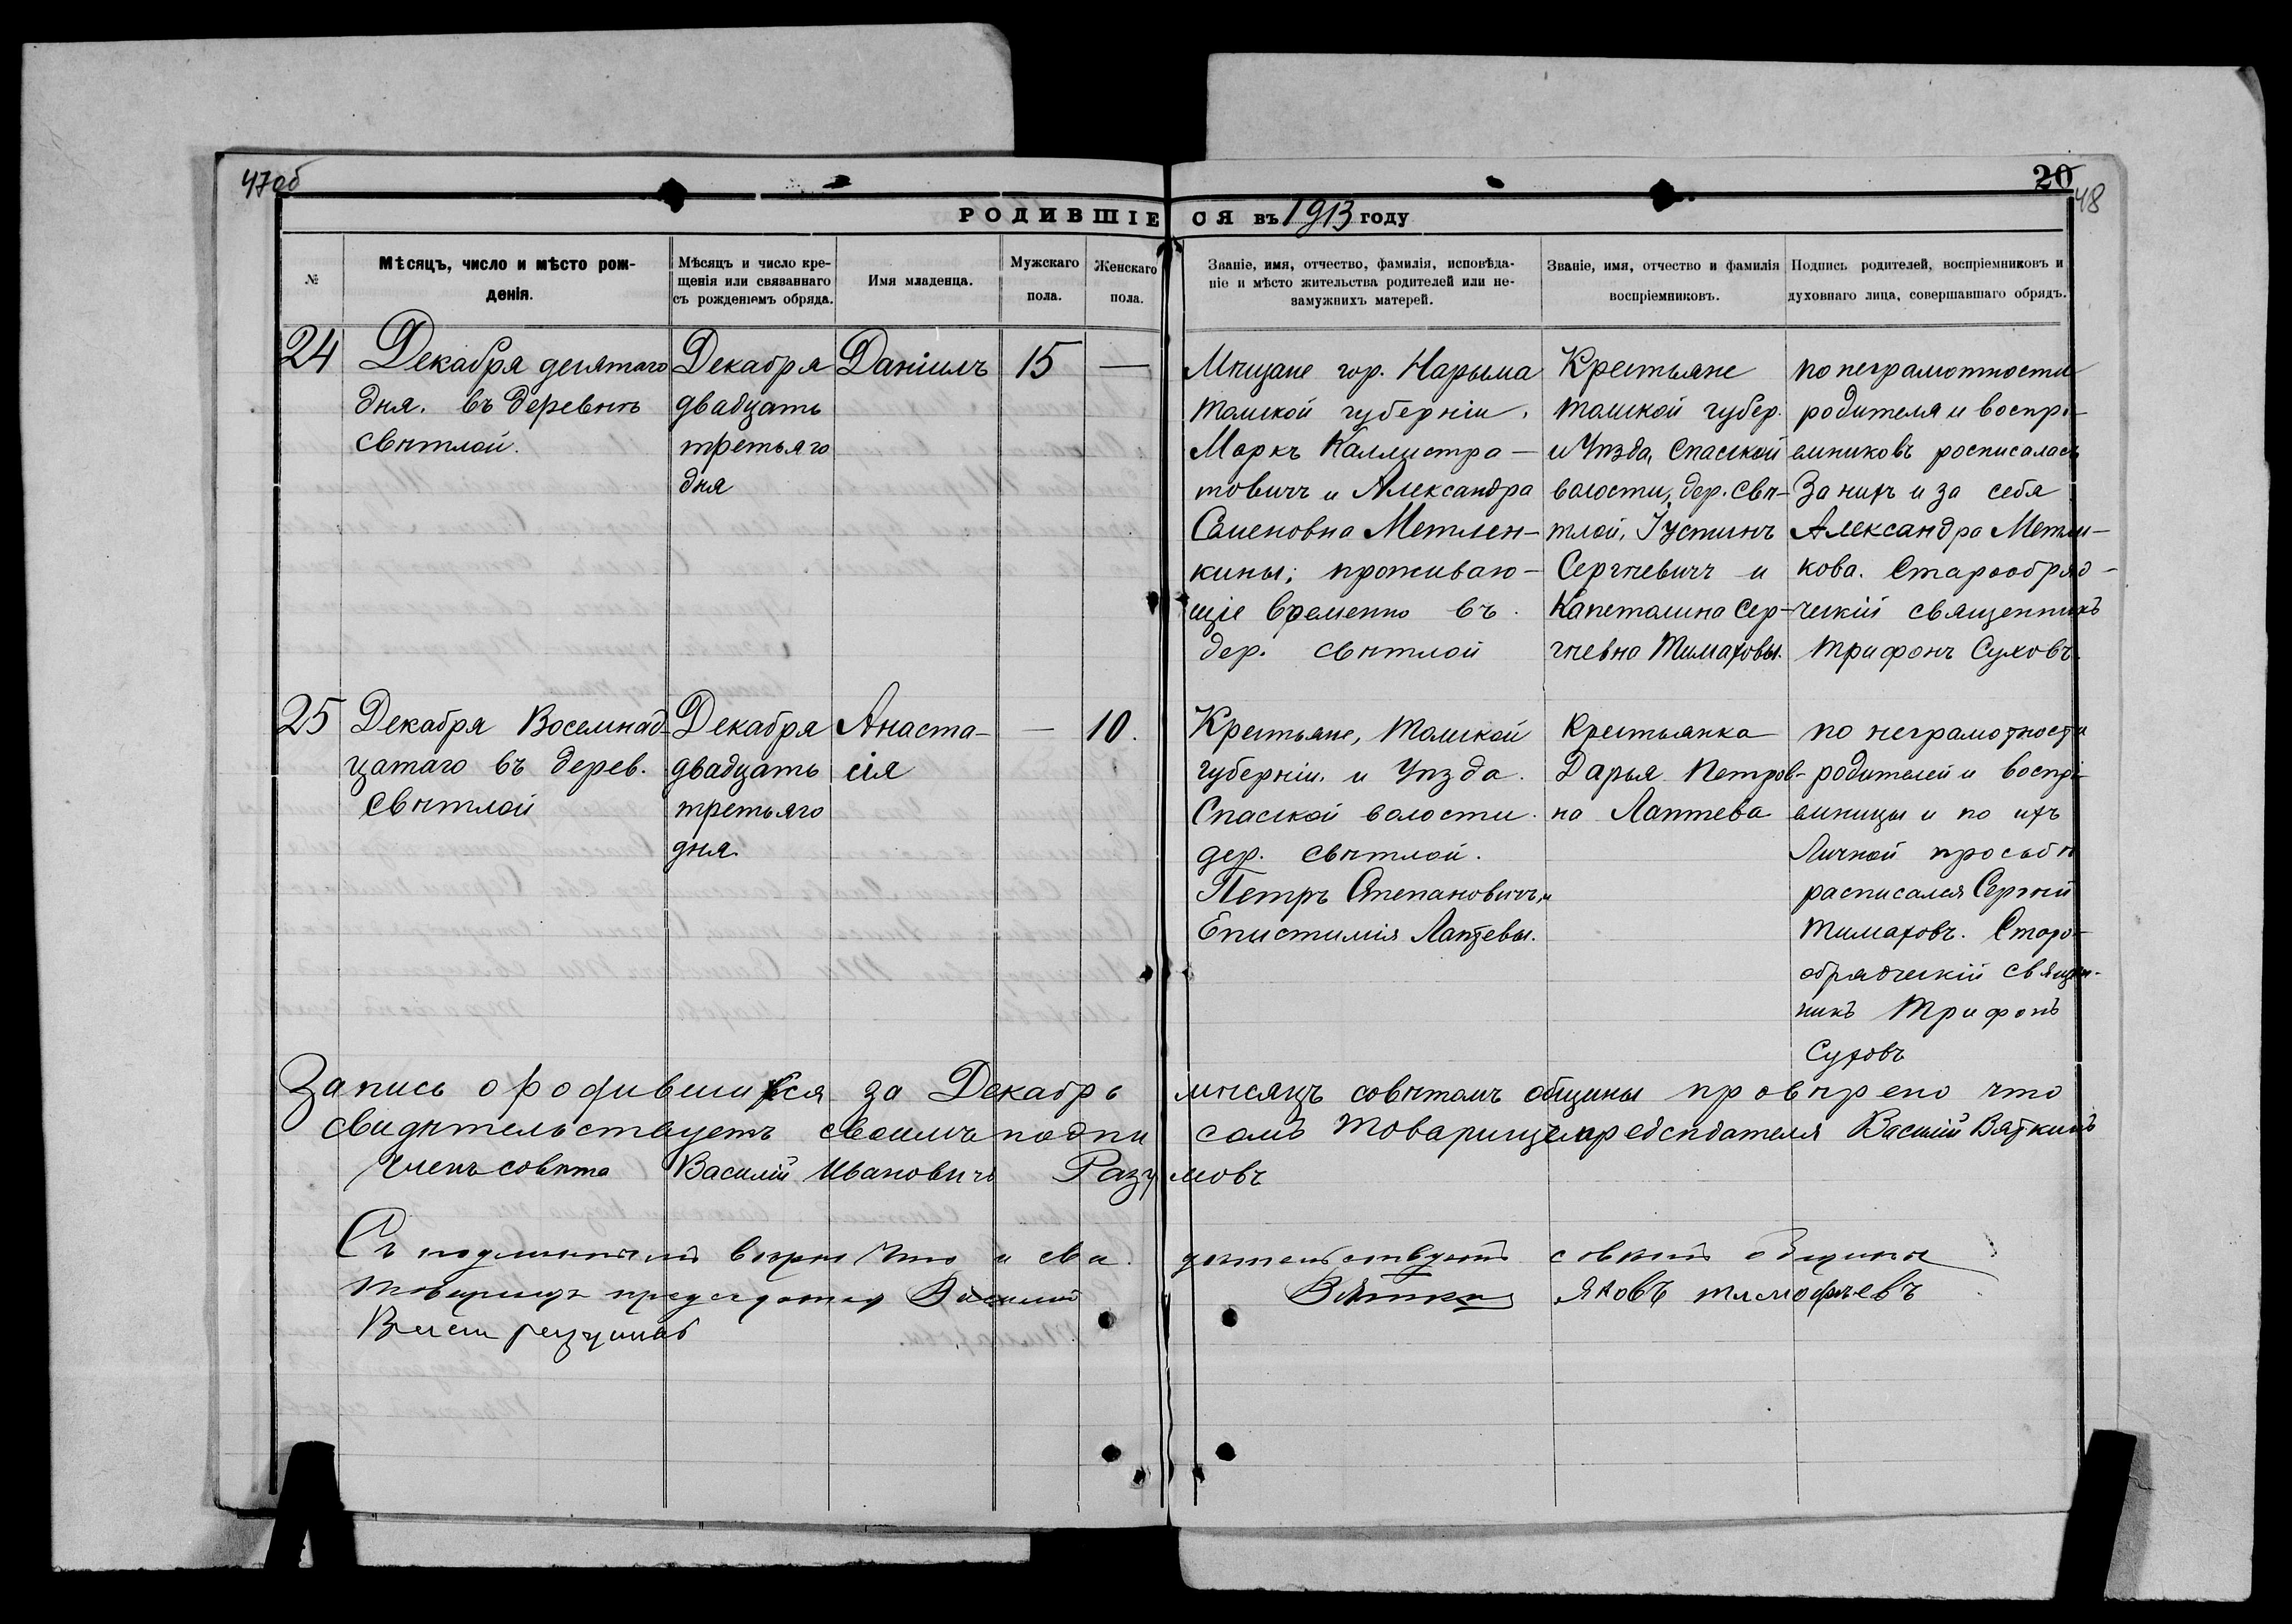 47об
20
48
РОДИВШІЕСЯ въ 1913 году
№
Мѣсяцъ, число и мѣсто рож-
денія.
Мѣсяцъ и число кре-
щенія или связаннаго
съ рожденіемъ обряда.
Имя младенца.
Мужскаго
пола.
Женскаго
пола.
Званіе, имя, отчество, фамилія, исповѣда-
ніе и мѣсто жительства родителей или не-
замужнихъ матерей.
Званіе, имя, отчество и фамилія
воспріемниковъ.
Подпись родителей, воспріемниковъ и
духовнаго лица, совершавшаго обрядъ.
24
Декабря десятаго
дня. въ деревнѣ
свѣтлой.
Декабря
двадцать
третьяго
дня
Даніилъ
15
—
Мѣщане гор. Нарыма
томской губерніи.
Маркъ Каллистра-
товичъ и Александра
Семеновна Метлен-
кины; проживаю-
щіе временно въ
дер. свѣтлой
Крестьяне
томской губер.
и Уѣзда, Спаской
волости, дер. Свѣ-
тлой, Іустинъ
Сергѣевичъ и
Капеталина Сер-
гѣевна Тимаховы.
по неграмотности
родителя и воспрі-
емниковъ росписалась
За нихъ и за себя
Александра Метлен-
кова. Старообряд-
ческій священникъ
Трифонъ Суховъ.
25
Декабря Восемнад-
цатаго въ дерев.
свѣтлой
Декабря
двадцать
третьяго
дня.
Анаста-
сія
—
10.
Крестьяне, Томской
губерніи. и Уѣзда.
Спаской волости.
дер. свѣтлой.
Петръ Степановичъ и
Епистимія Лаптевы.
Крестьянка
Дарья Петров-
на Лаптева
по неграмотности
родителей и воспрі-
емницы и по ихъ
Личной просьбѣ
расписался Сергѣй
Тимаховъ. Старо-
обрядческій священ-
никъ Трифонъ
Суховъ
Запись о родившихся за Декабрь мѣсяцъ совѣтомъ общины провѣрено что
свидѣтельствуетъ своимъ подписомъ Товарищъ предсѣдателя Василій Вяткинъ
Членъ совѣта Василій Ивановичъ Разумовъ
Съ подлиннымъ вѣрно что и свидѣтельствуетъ совѣтъ общины
товарищъ предсѣдателя Василий Вяткин Яковъ тимофѣевъ
разумов